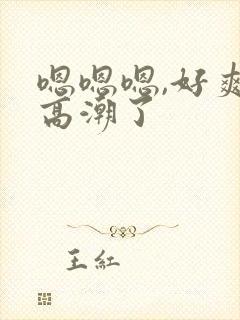 嗯嗯嗯,好爽
高潮了
王紅